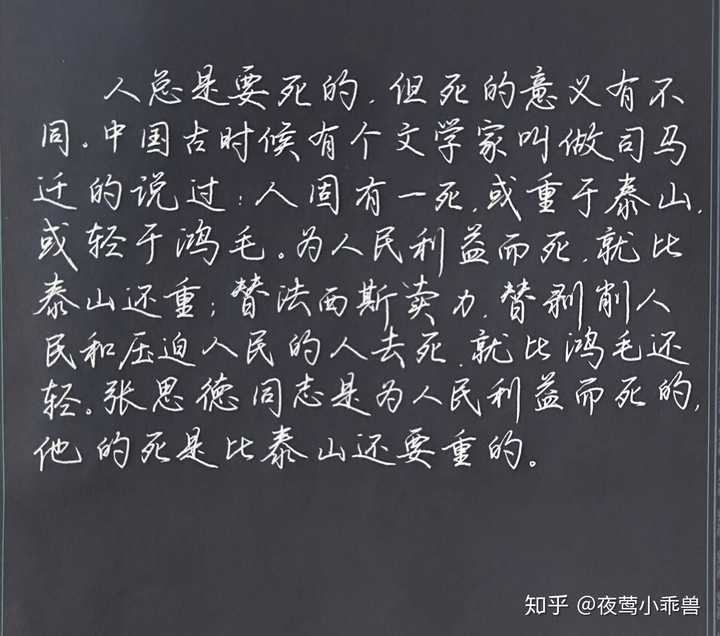 人总是要死的，但死的意义有不
同。中国古时候有个文学家叫做司马
迁的说过：人固有一死，或重于泰山，
或轻于鸿毛。为人民利益而死，就比
泰山还重；替法西斯卖力，替剥削人
民和压迫人民的人去死，就比鸿毛还
轻。张思德同志是为人民利益而死的，
他的死是比泰山还要重的。
知乎 @夜莺小乖兽